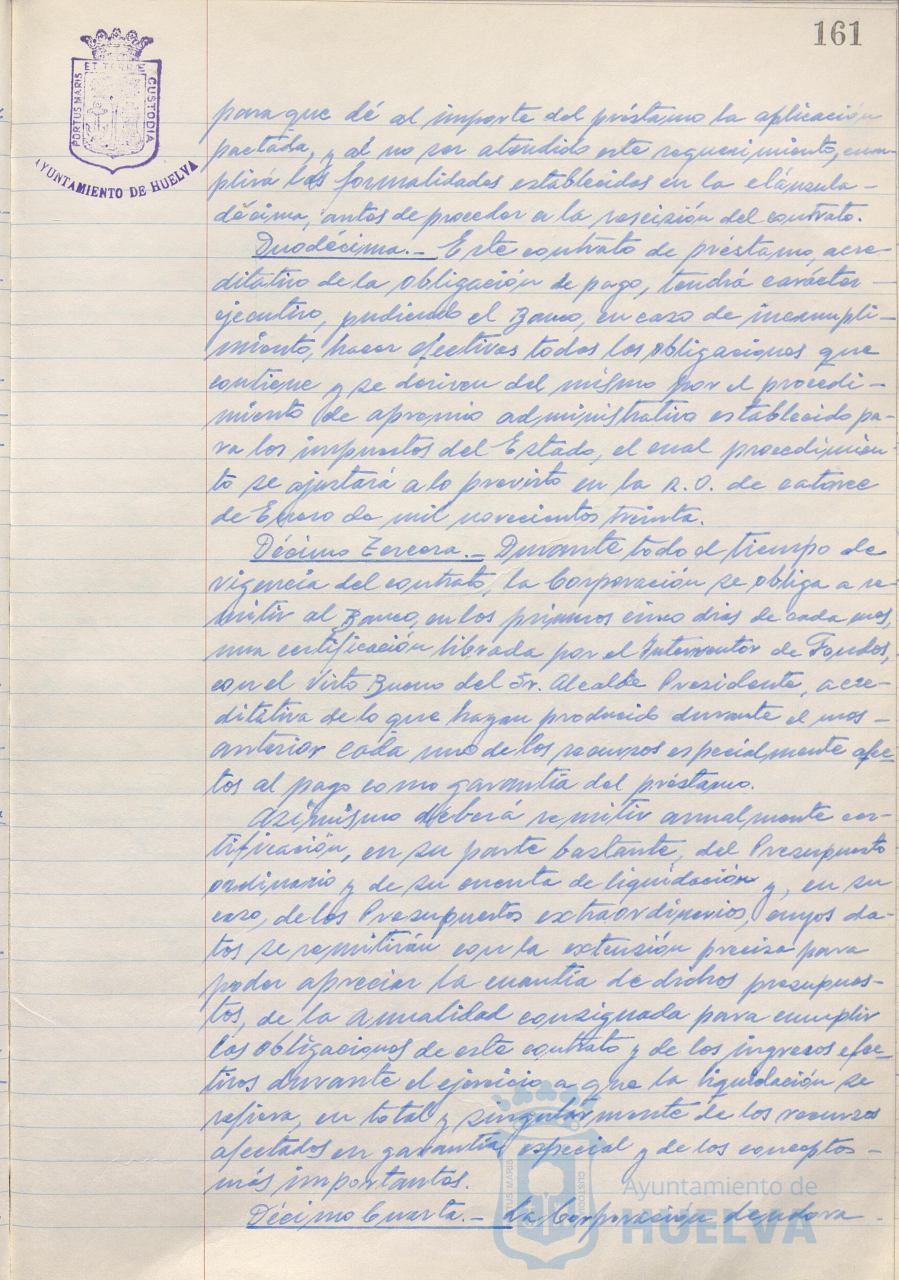 161
PORTUS MARIS ET TERRAE CUSTODIA
AYUNTAMIENTO DE HUELVA
para que dé al importe del préstamo la aplicación
pactada, y al no ser atendido este requerimiento, cum-
plirá las formalidades establecidas en la cláusula –
décima, antes de proceder a la rescisión del contrato.
Duodécima.– Este contrato de préstamo, acre-
ditativo de la obligación de pago, tendrá carácter –
ejecutivo, pudiendo el Banco, en caso de incumpli-
miento, hacer efectivas todas las obligaciones que
contiene y se deriven del mismo por el procedi-
miento de apremio administrativo establecido pa-
ra los impuestos del Estado, el cual procedimien-
to se ajustará a lo previsto en la R.O. de catorce
de Enero de mil novecientos treinta.
Décimo Tercera.– Durante todo el tiempo de
vigencia del contrato, la Corporación se obliga a re-
mitir al Banco, en los primeros cinco días de cada mes,
una certificación librada por el Interventor de Fondos,
con el Visto Bueno del Sr. Alcalde Presidente, acre-
ditativa de lo que hayan producido durante el mes –
anterior cada uno de los recursos especialmente afec-
tos al pago como garantía del préstamo.
Asimismo deberá remitir anualmente cer-
tificación, en su parte bastante, del Presupuesto
ordinario y de su cuenta de liquidación y, en su
caso, de los Presupuestos extraordinarios, cuyos da-
tos se remitirán con la extensión precisa para
poder apreciar la cuantía de dichos presupues-
tos, de la anualidad consignada para cumplir
las obligaciones de este contrato y de los ingresos efec-
tivos durante el ejercicio a que la liquidación se
refiera, en total y singularmente de los recursos
afectados en garantía especial y de los conceptos –
más importantes.
Décimo Cuarta.– La Corporación deudora –
PORTUS MARIS CUSTODIA
Ayuntamiento de
HUELVA